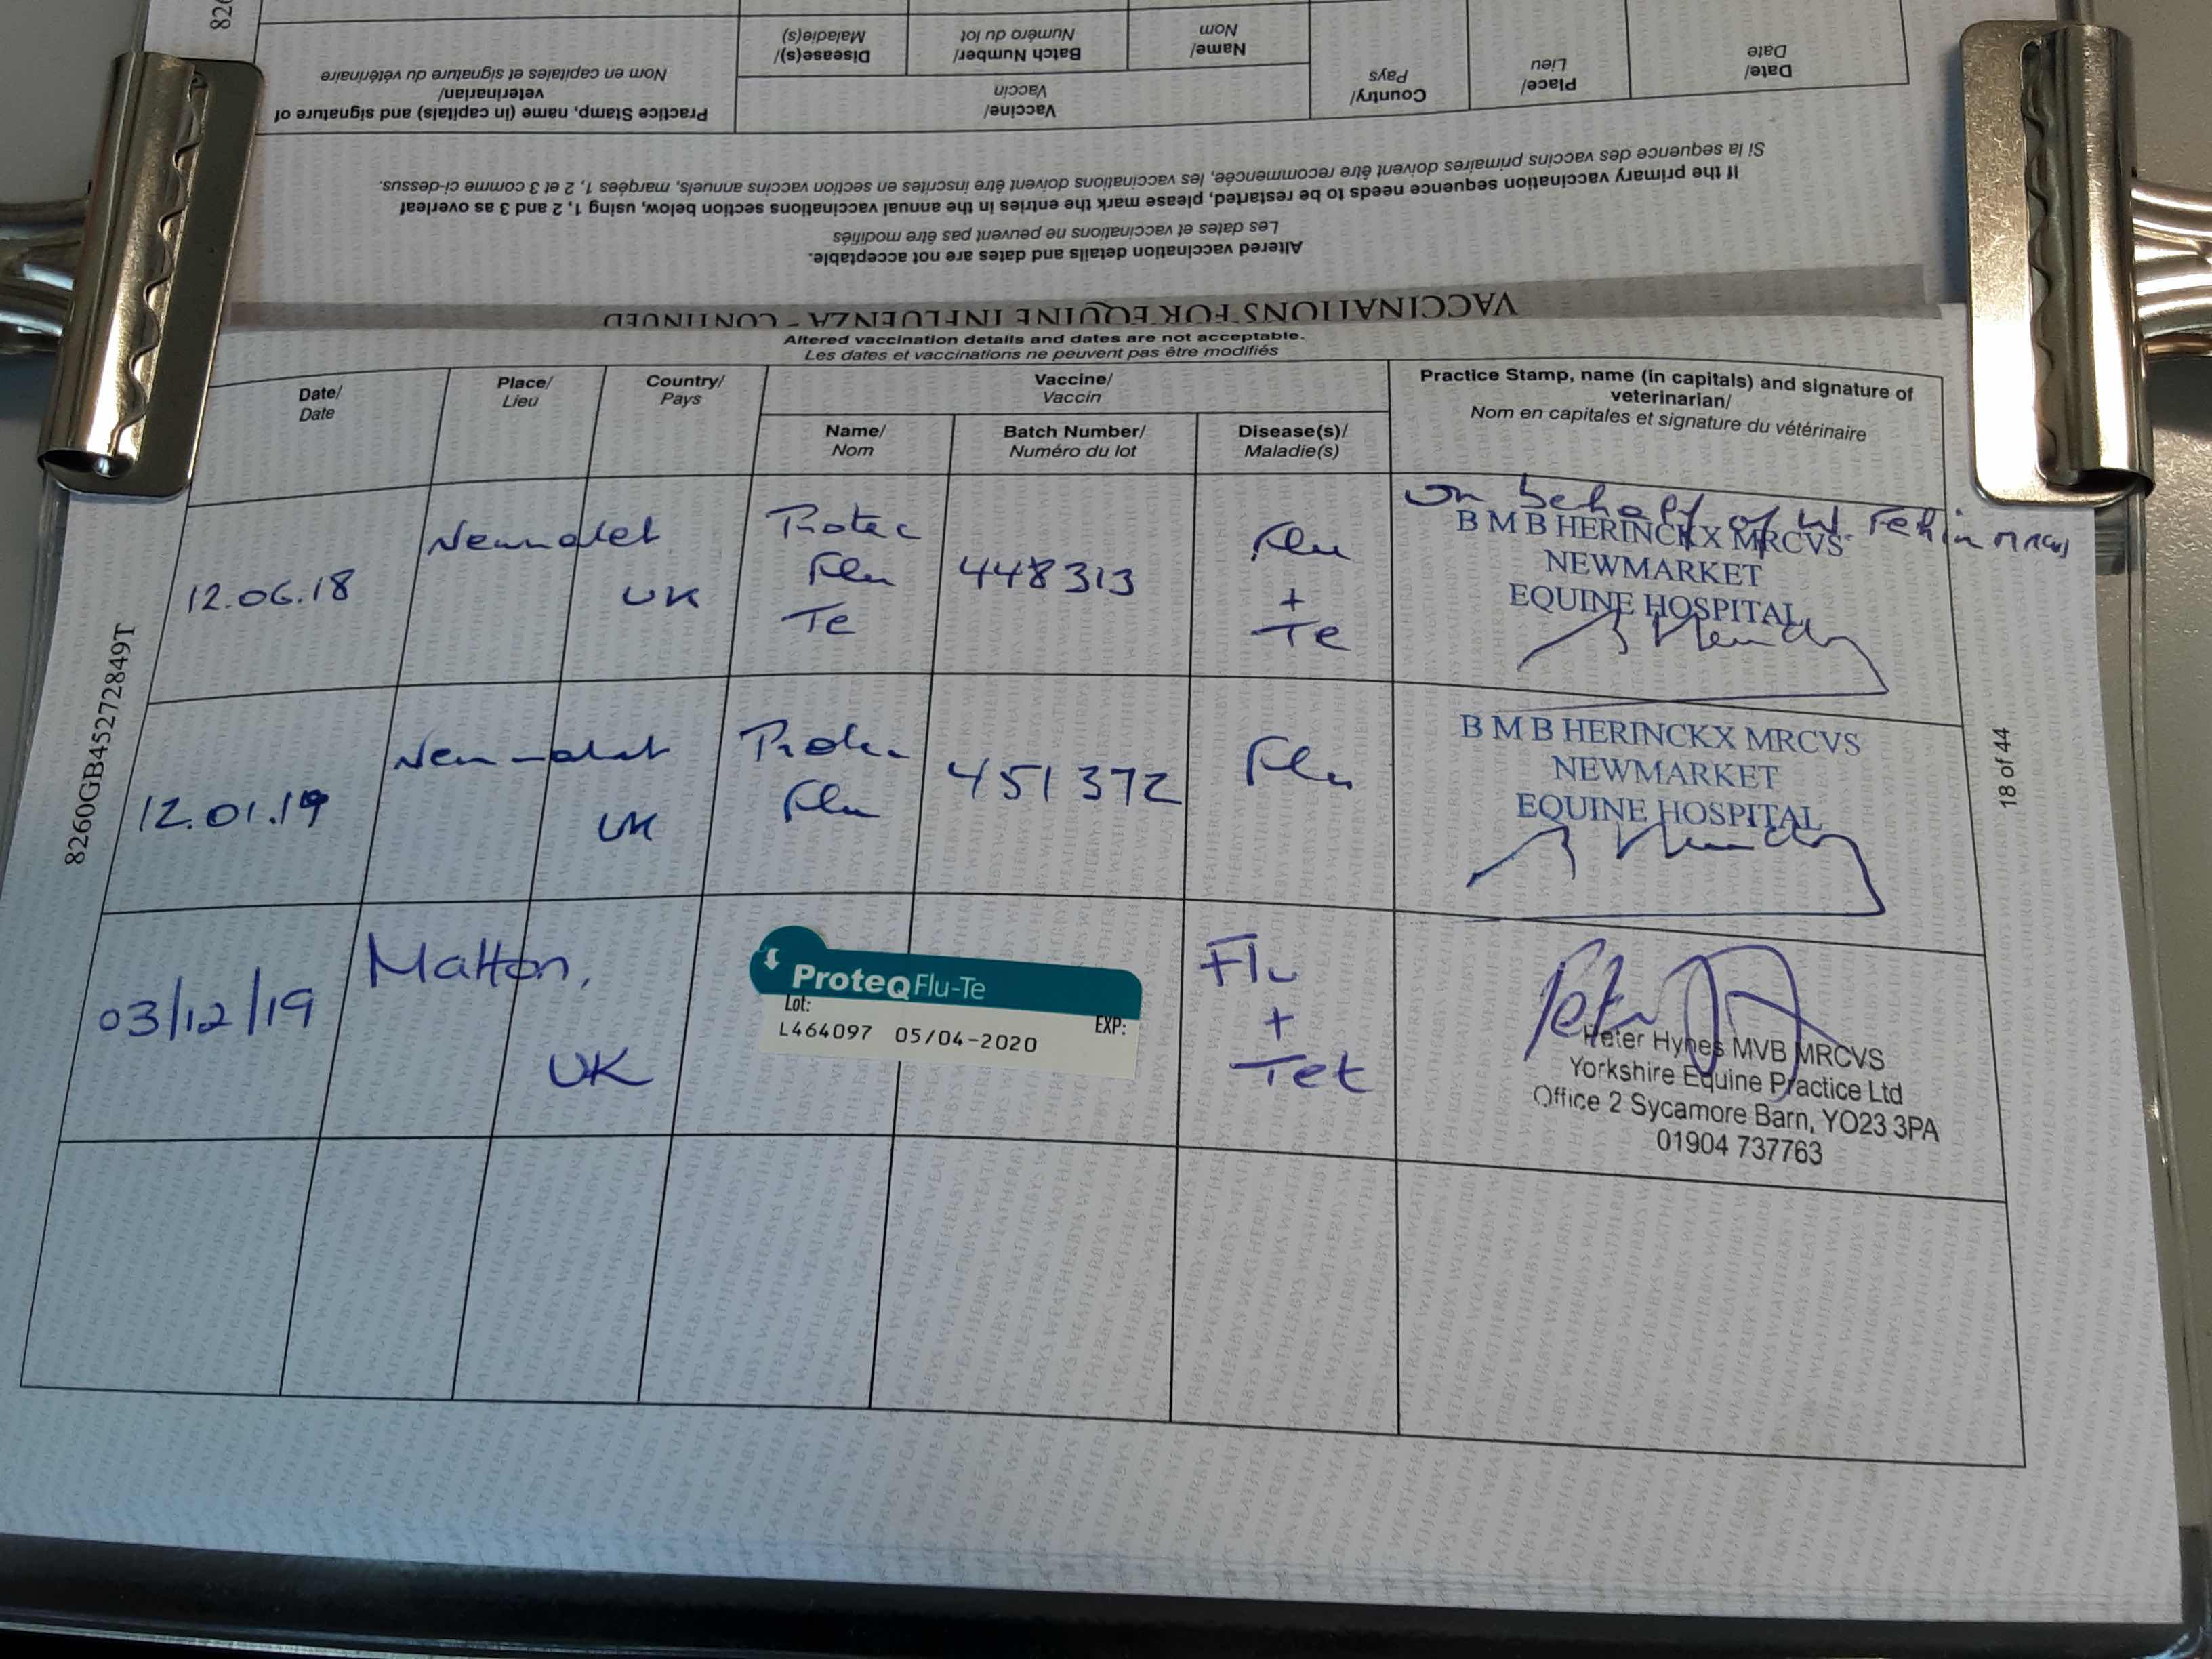 826
Practice Stamp, name (in capitals) and signature of
veterinarian/
Nom en capitales et signature du vétérinaire
Disease(s)/
Maladie(s)
Batch Number/
Numéro du lot
Name/
Nom
Vaccine/
Vaccin
Country/
Pays
Place/
Lieu
Date/
Date
If the primary vaccination sequence needs to be restarted, please mark the entries in the annual vaccinations section below, using 1, 2 and 3 as overleaf
Si la sequence des vaccins primaires doivent être recommencée, les vaccinations doivent être inscrites en section vaccins annuels, marqées 1, 2 et 3 comme ci-dessus.
Altered vaccination details and dates are not acceptable.
Les dates et vaccinations ne peuvent pas être modifiés
VACCINATIONS FOR EQUINE INFLUENZA - CONTINUED
Altered vaccination details and dates are not acceptable.
Les dates et vaccinations ne peuvent pas être modifiés
Date/
Date
Place/
Lieu
Country/
Pays
Vaccine/
Vaccin
Name/
Nom
Batch Number/
Numéro du lot
Disease(s)/
Maladie(s)
Practice Stamp, name (in capitals) and signature of
veterinarian/
Nom en capitales et signature du vétérinaire
12.06.18
Newmarket
UK
Protec
Flu
Te
448313
Flu
+
Te
on behalf of W.
B M B HERINCKX MRCVS
NEWMARKET
EQUINE HOSPITAL
12.01.19
Newmarket
UK
Protec
Flu
451372
Flu
B M B HERINCKX MRCVS
NEWMARKET
EQUINE HOSPITAL
03/12/19
Malton,
UK
ProteqFlu-Te
Lot:
EXP:
L464097 05/04-2020
Flu
+
Tet
Peter
Peter Hynes MVB MRCVS
Yorkshire Equine Practice Ltd
Office 2 Sycamore Barn, YO23 3PA
01904 737763
8260GB45272849T
18 of 44